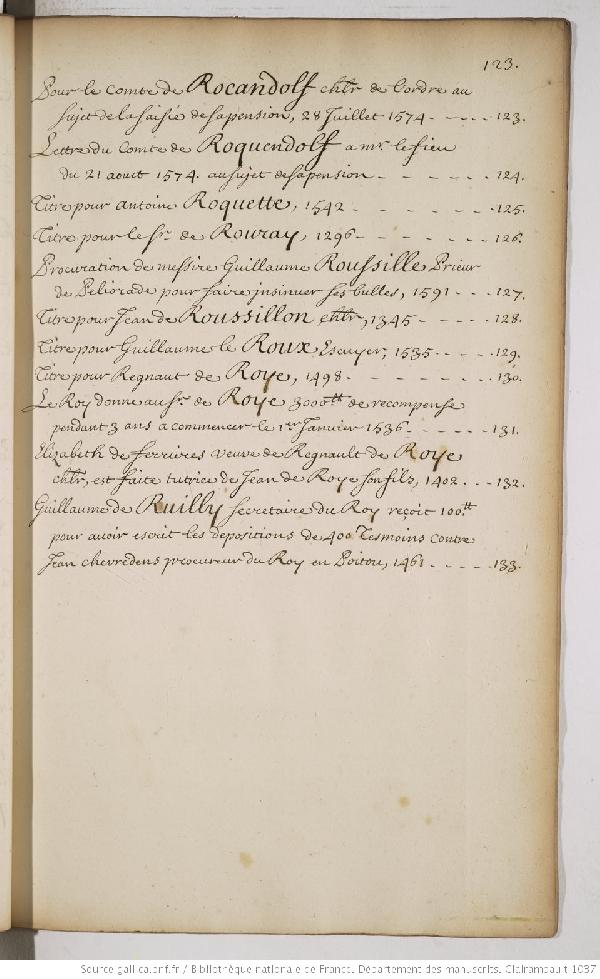 123.
Pour le Comte de Rocandolf chlr de l'ordre au
sujet de la saisie de sa pension, 28 Juillet 1574 - - - - - 123.
Lettre du Comte de Roquendolf a mr. le
du 21 aoust 1574. au sujet de sa pension - - - - - - 124.
Titre pour Antoine Roquette, 1542 - - - - - - 125.
Titre pour le sr. de Rouray, 1296 - - - - - - 126.
Procuration de messire Guillaume Roussille Prieur
de Peliorade pour faire insinuer ses bulles, 1591 - - - 127.
Titre pour Jean de Roussillon chlr, 1345 - - - - - 128.
Titre pour Guillaume le Roux Escuyer, 1535 - - - - 129.
Titre pour Regnaut de Roye, 1498 - - - - - - - 130.
Le Roy donne au sr. de Roye 3000tt de recompense
pendant 3 ans a commencer le 1er Janvier 1536 - - - - - 131.
Elizabeth de ferrieres veuve de Regnault de Roye
chlr, est faite tutrice de Jean de Roye son fils, 1402 - - - 132.
Guillaume de Ruilly secretaire du Roy reçoit 100tt
pour avoir escrit les depositions de 400 Tesmoins contre
Jean chevredens procureur du Roy en Poitou, 1461 - - - - - 133.
Source gallica.bnf.fr / Bibliothèque nationale de France. Département des manuscrits. Clairambault 1037